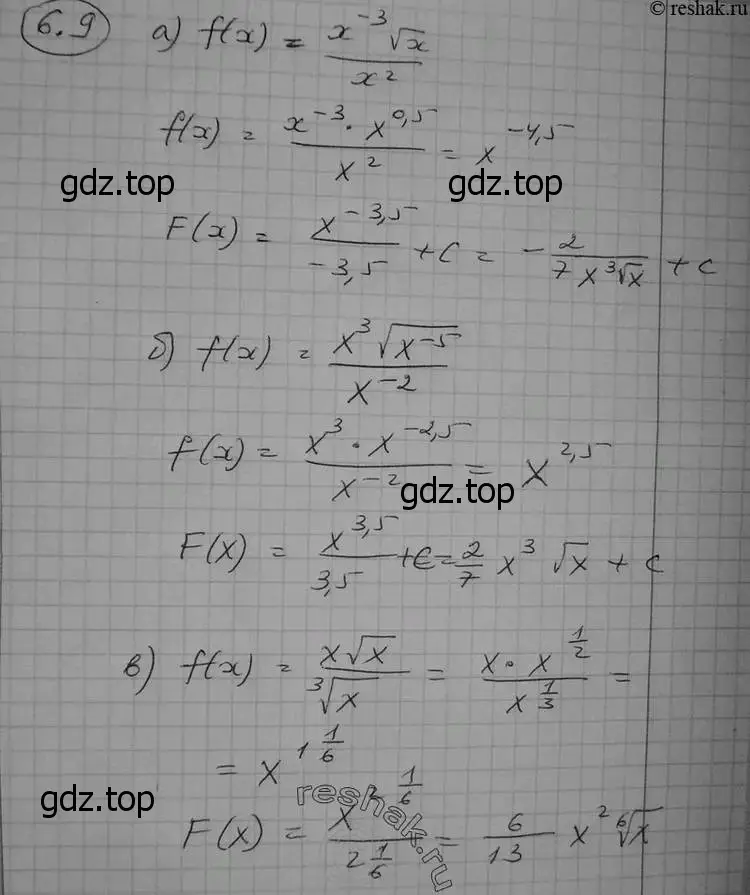 © reshak.ru
6.9 а) f(x) = x⁻³√x / x²
f(x) = x⁻³ · x^0,5 / x² = x^-4,5
gdz.top gdz.top
F(x) = x^-3,5 / -3,5 + C = - 2 / 7x³√x + C
б) f(x) = x³√x⁻⁵ / x⁻²
f(x) = x³ · x^-2,5 / x⁻² = x^2,5
gdz.top
F(x) = x^3,5 / 3,5 + C = 2/7 x³ √x + C
в) f(x) = x√x / ³√x = x · x^1/2 / x^1/3 =
= x^1 1/6
gdz.top
reshak.ru
F(x) = x^2 1/6 / 2 1/6 = 6/13 x² ⁶√x